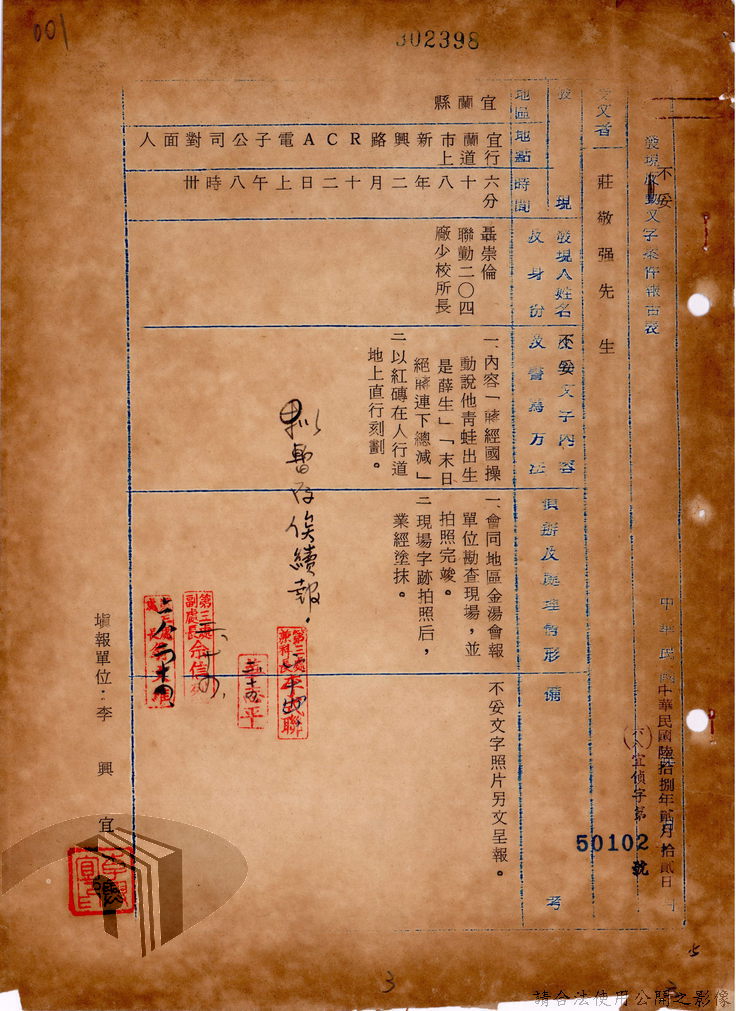 001
302398
發現反動文字案件報告表
不妥
中華民國陸拾捌年貳月拾貳日
(六八)宜偵字第
50102
號
受文者
莊敬强先生
發現
地區
地點
時間
發現人姓名及身份
不妥文字內容及書寫方法
偵辦及處理情形
備考
宜蘭縣
宜蘭市新興路RCA電子公司對面人
行道上
六十八年二月十二日上午八時卅
分
聶崇倫
聯勤二〇四
廠少校所長
一、內容「蔣經國操
動說他青蛙出生
是薛生」「末日
絕蔣連下總減」
二以紅磚在人行道
地上直行刻劃。
一、會同地區金湯會報
單位勘查現場，並
拍照完竣。
二現場字跡拍照后，
業經塗抹。
不妥文字照片另文呈報。
擬暫存俟續報。
第三處
副處長
第三處
兼科長
平
填報單位：李興宜
3
請合法使用公開之影像